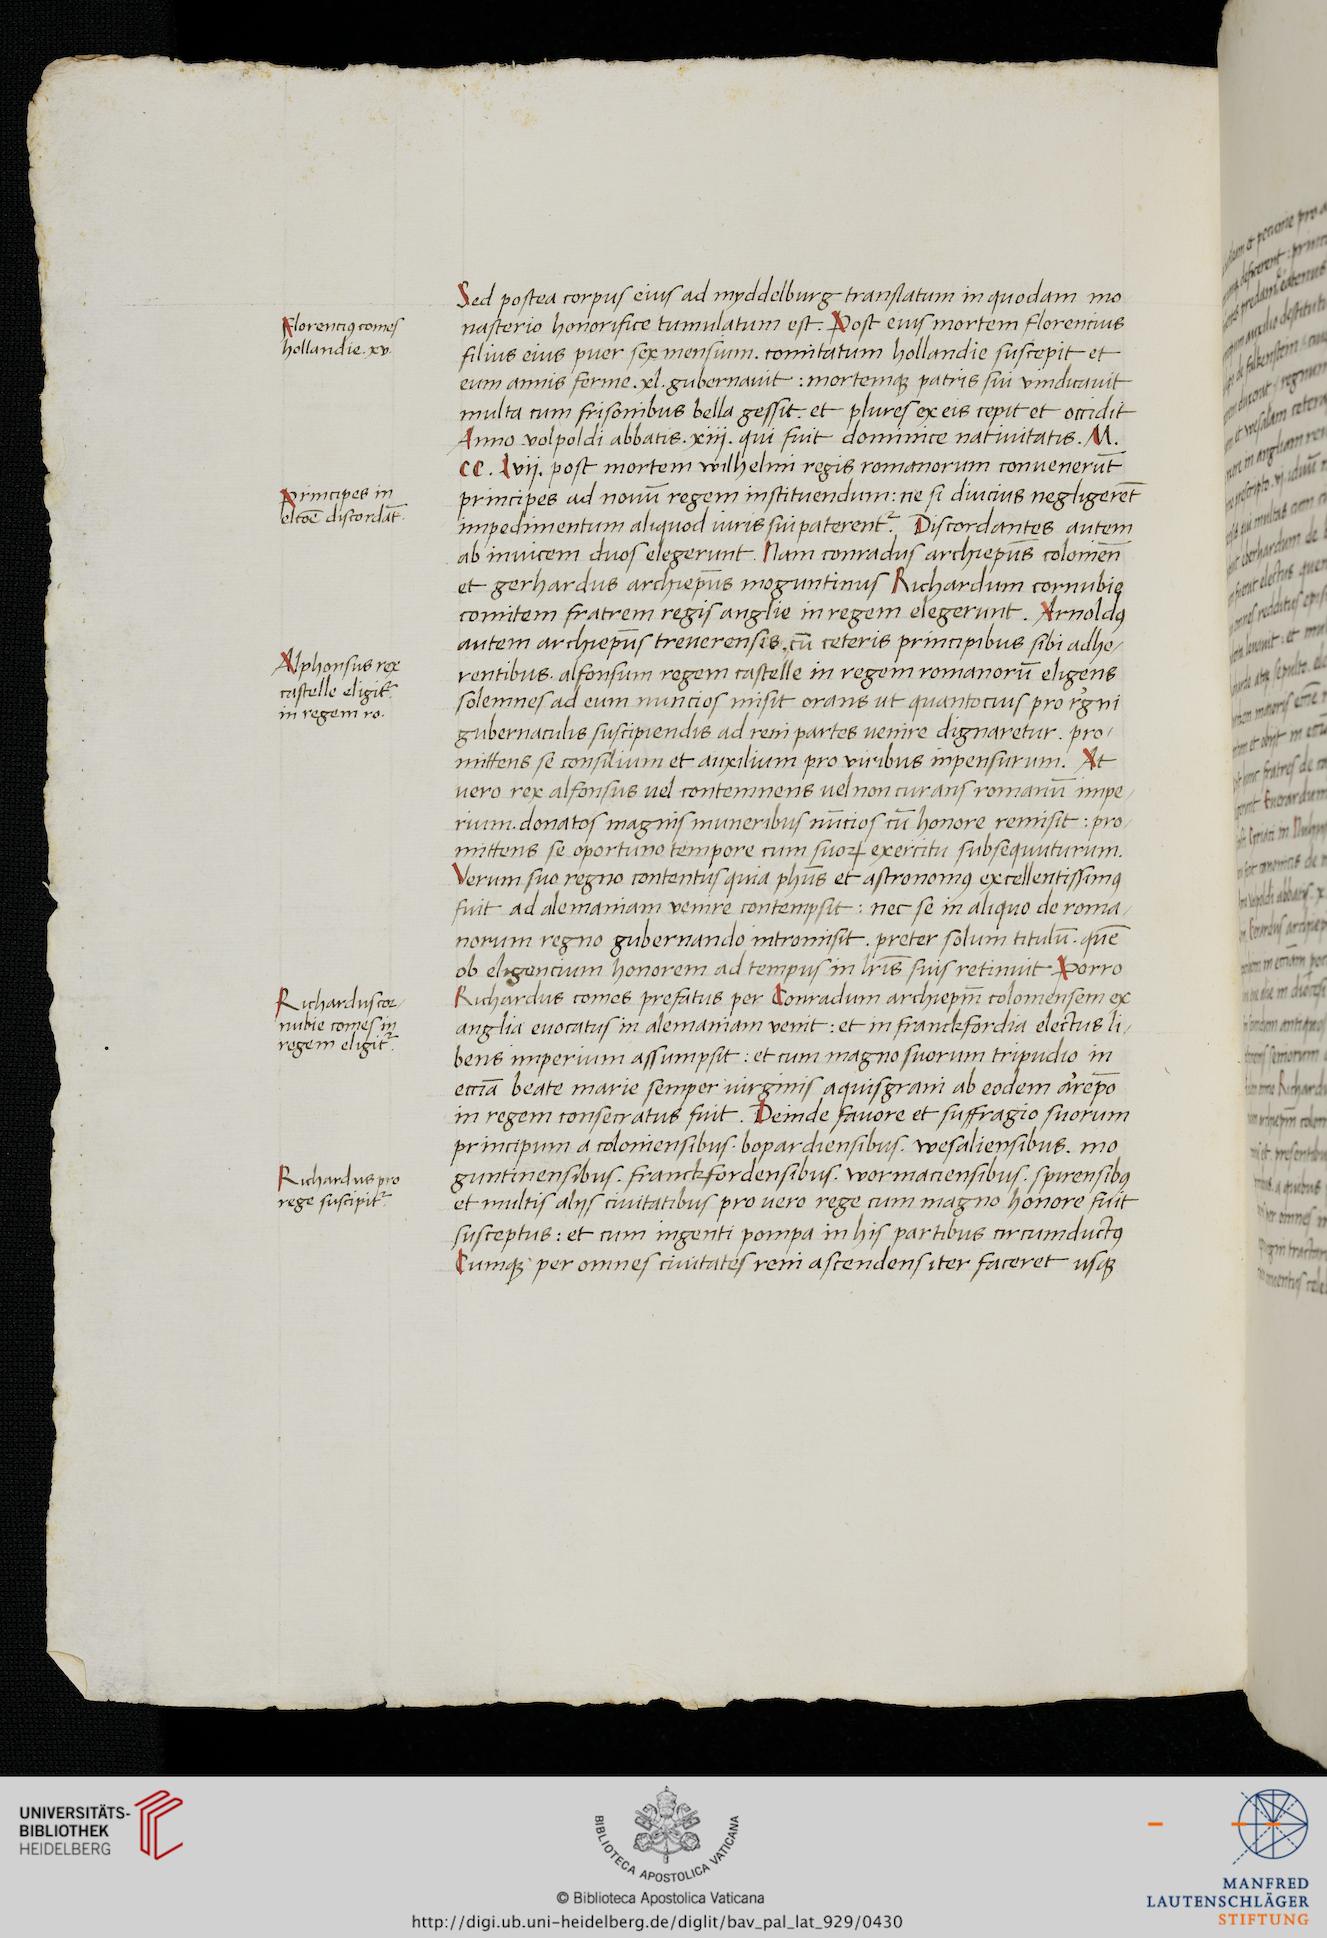 Sed postea corpus eius ad myddelburg translatum in quodam mo
nasterio honorifice tumulatum est. Post eius mortem florencius
filius eius puer sex mensium. comitatum hollandie suscepit et
eum annis ferme .xl. gubernauit : mortemqꝫ patris sui vindicauit
multa cum frisonibus bella gessit. et plures ex eis cepit et occidit
Anno volpoldi abbatis .xiij. qui fuit dominice natiuitatis. M.
CC. Lvij. post mortem wilhelmi regis romanorum conuenerūt
principes ad nouū regem instituendum: ne si diucius negligerēt
impedimentum aliquod iuris sui paterent᷑. Discordantes autem
ab inuicem duos elegerunt. Nam conradus archiep̄us coloniēn
et gerhardus archiep̄us moguntinus Richardum cornubie
comitem fratrem regis anglie in regem elegerunt. Arnoldꝯ
autem archiep̄us treuerensis, cū ceteris principibus sibi adhe/
rentibus. alfonsum regem castelle in regem romanorū eligens
solemnes ad eum nuncios misit orans ut quantocius pro rꝰgni
gubernaculis suscipiendis ad reni partes venire dignaretur. pro/
mittens se consilium et auxilium pro viribus inpensurum. At
vero rex alfonsus vel contemnens vel non curans romanū impe/
rium. donatos magnis muneribus nūcios cū honore remisit : pro/
mittens se oportuno tempore cum suoꝝ exercitu subsequuturum.
Verum suo regno contentus quia ph̄us et astronomꝯ excellentissimꝯ
fuit ad alemaniam venire contempsit : nec se in aliquo de roma/
norum regno gubernando intromisit. preter solum titulū. quē
ob eligencium honorem ad tempus in lr̄is suis retinuit Porro
Richardus comes prefatus per Conradum archiep̄m coloniensem ex
anglia euocatus in alemaniam venit : et in franckfordia electus li/
bens imperium assumpsit : et cum magno suorum tripudio in
eccīa beate marie semper virginis aquisgrani ab eodem arꝰep̄o
in regem consecratus fuit. Deinde fauore et suffragio suorum
principum a coloniensibus. bopardiensibus. wesaliensibus. mo
guntinensibus. franckfordensibus. wormaciensibus. spirensibꝯ
et multis alijs ciuitatibus pro vero rege cum magno honore fuit
susceptus : et cum ingenti pompa in his partibus circumductꝯ
Cumqꝫ per omnes ciuitates reni ascendens iter faceret usqꝫ
Florenciꝯ comes
hollandie .xv.
Principes in
elcōe discordāt.
Alphonsus rex
castelle eligit᷑
in regem ro.
Richardus cor/
nubie comes in
regem eligit᷑.
Richardus pro
rege suscipit᷑
UNIVERSITÄTS-
BIBLIOTHEK
HEIDELBERG
BIBLIOTECA APOSTOLICA VATICANA
© Biblioteca Apostolica Vaticana
http://digi.ub.uni-heidelberg.de/diglit/bav_pal_lat_929/0430
MANFRED
LAUTENSCHLÄGER
STIFTUNG